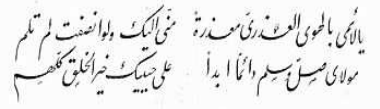 يا لائمى بالهوى العذرى معذرة منى اليك ولو انصفت لم تلم
مولاى صل وسلم دائما ابدا على حبيبك خير الخلق كلهم